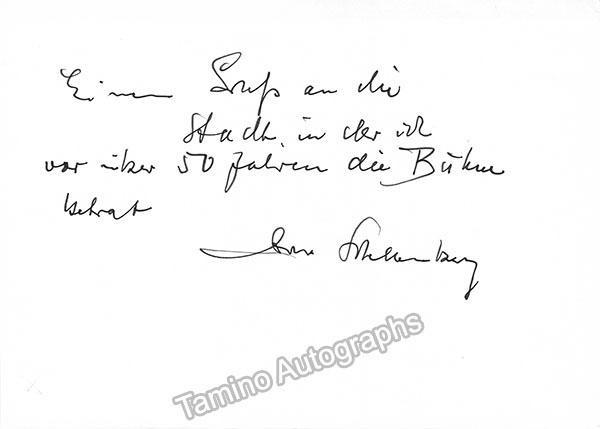 Einen Gruß an die
Stadt, in der ich
vor über 50 Jahren die Bühne
betrat
Schellenberg
Tamino Autographs